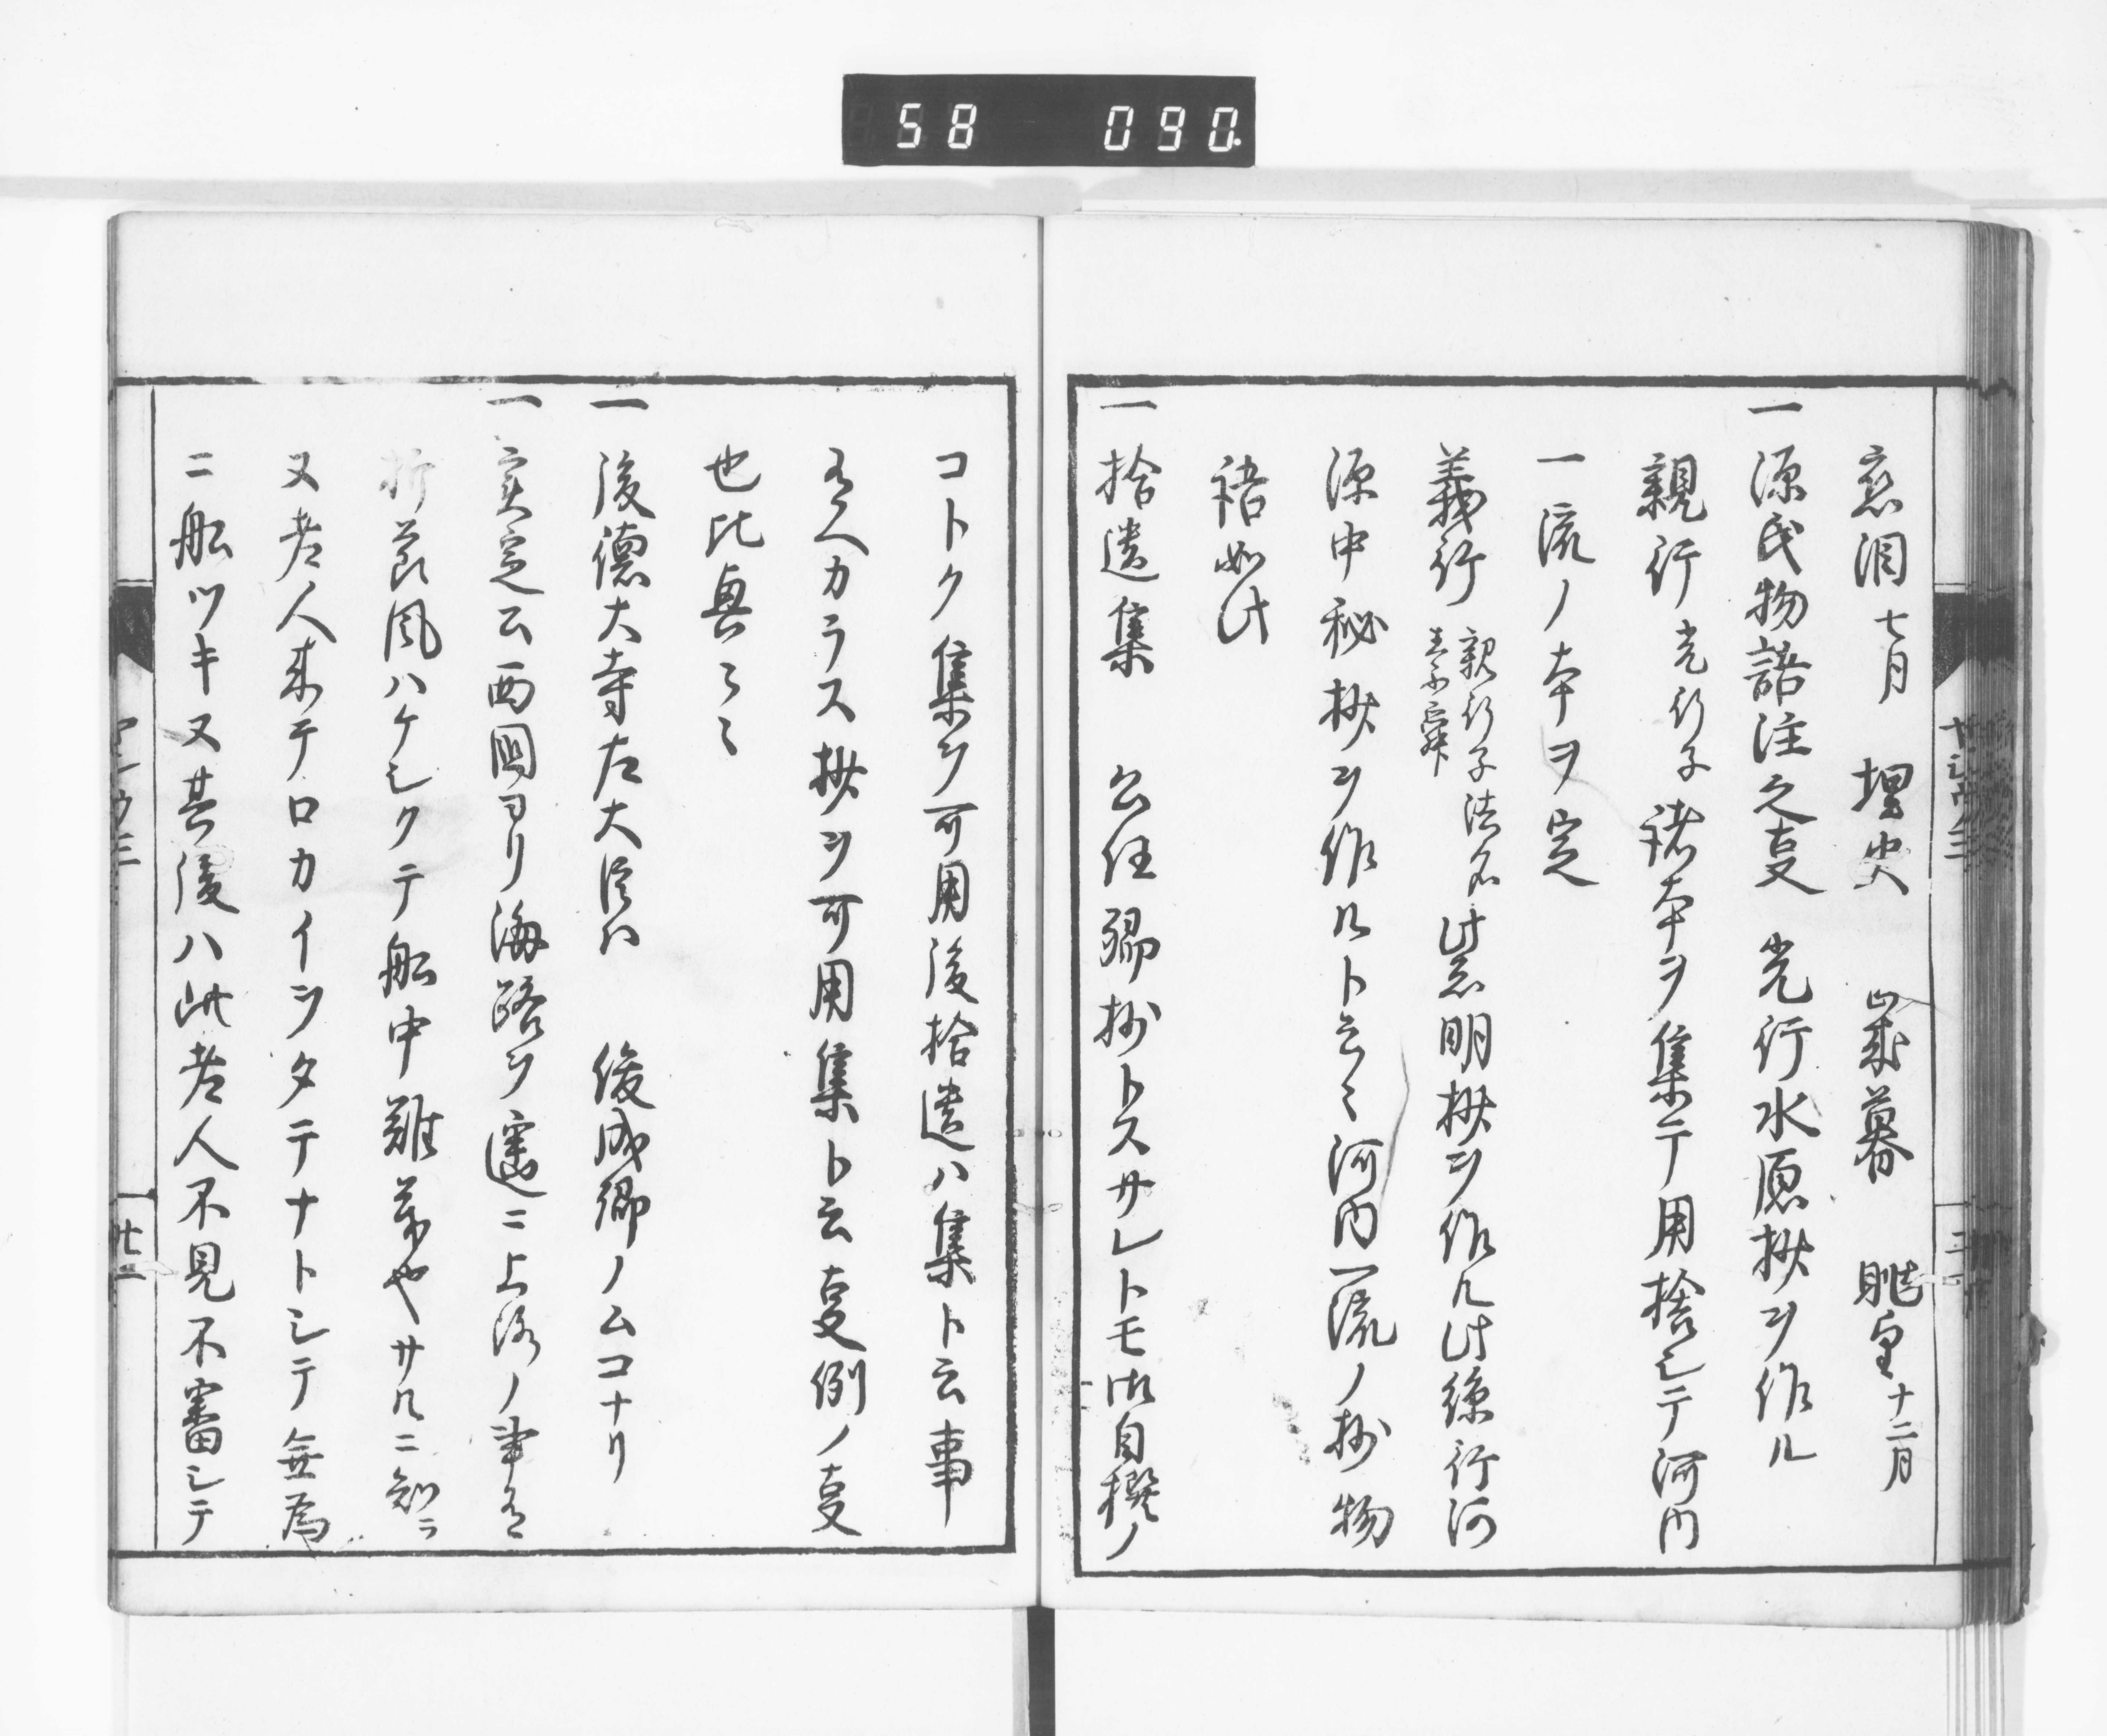 58 090
恋泪七月 埋火 歳暮 眺望十二月
一源氏物語注之叓 光行水原抄ヲ作ル
親行光行子諸本ヲ集テ用捨シテ河内
一流ノ本ヲ定
義行親行子法名 此紫明抄ヲ作ル此孫行阿
源中秘抄ヲ作ルト云々河内一流ノ抄物
語如此
一拾遺集 公任卿抄トスサレトモ御自撰ノ
コトク集ヲ可用後拾遺ハ集ト云事
有ヘカラス抄ヲ可用集ト云叓例ノ叓
也比興云々
一後徳大寺左大臣ハ 俊成卿ノムコナリ
一実定公西国ヨリ海路ヲ遥ニ上洛ノ事有
折節風ハケシクテ船中難義也サルニ知ラ
又老人来テロカイヲタテナトシテ無為
ニ船ツキ又其後ハ此老人不見不審シテ